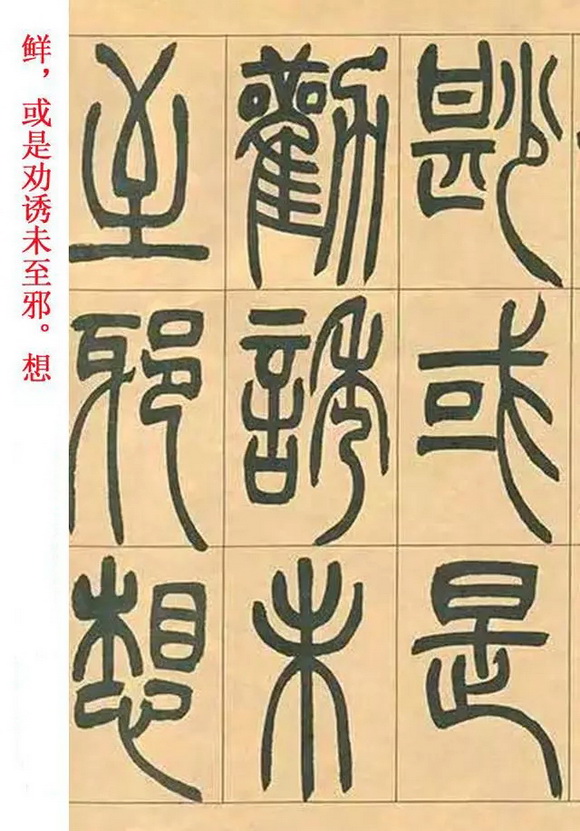 尠或是
勸誘未
至邪想
鲜，或是劝诱未至邪。想